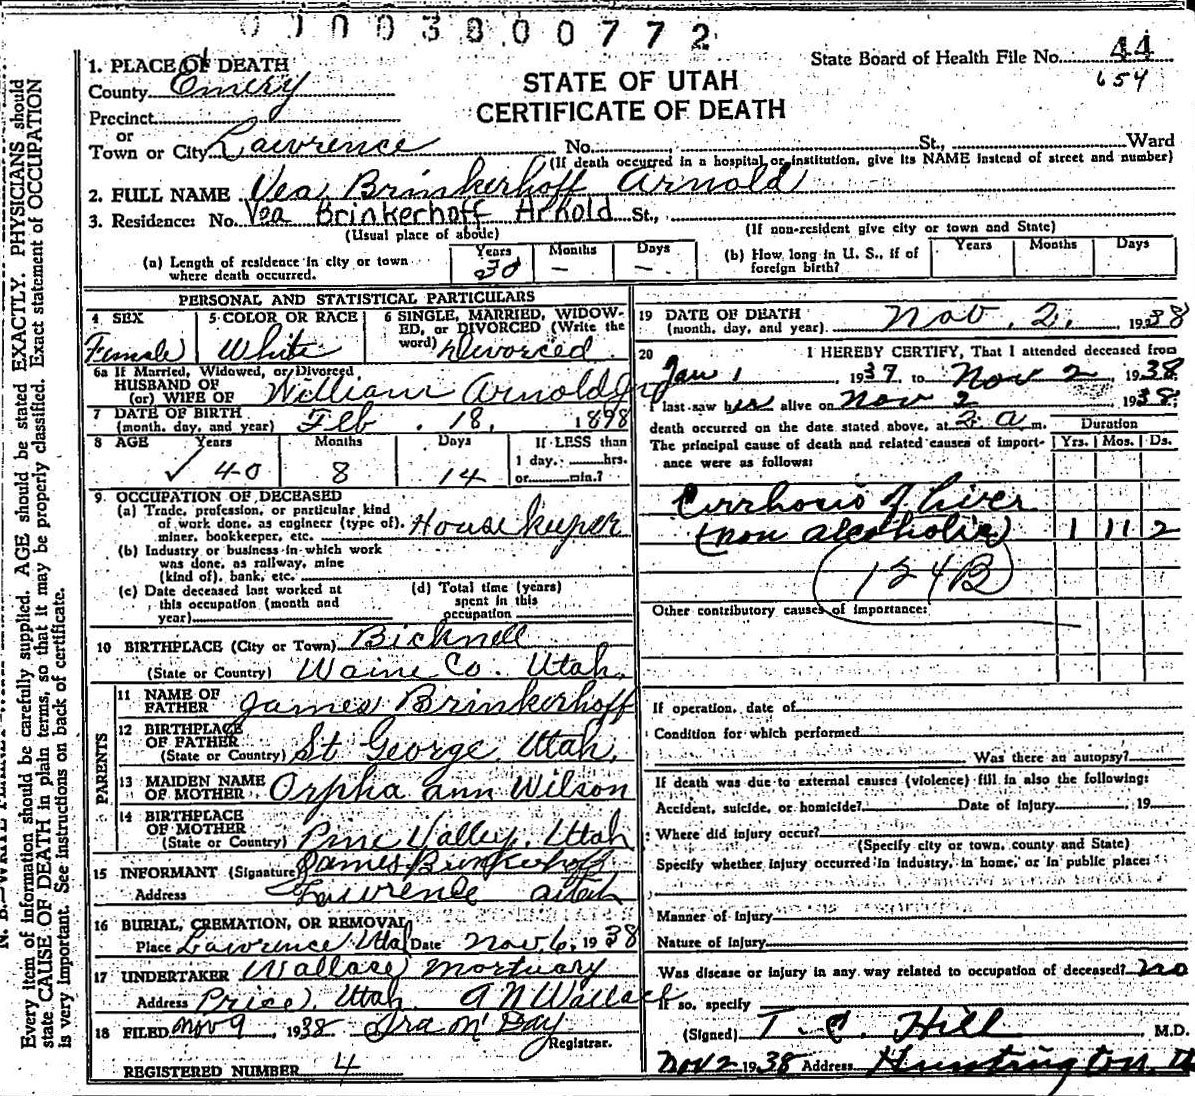 01003800772
State Board of Health File No. 44
654
1. PLACE OF DEATH
County Emery
STATE OF UTAH
CERTIFICATE OF DEATH
Precinct
or
Town or City Lawrence No. St., Ward
(If death occurred in a hospital or institution, give its NAME instead of street and number)
2. FULL NAME Vea Brinkerhoff Arnold
3. Residence: No. Vea Brinkerhoff Arnold St.,
(Usual place of abode) (If non-resident give city or town and State)
(a) Length of residence in city or town where death occurred. Years 30 Months – Days –
(b) How long in U. S., if of foreign birth? Years Months Days
PERSONAL AND STATISTICAL PARTICULARS
4 SEX Female
5 COLOR OR RACE White
6 SINGLE, MARRIED, WIDOWED, or DIVORCED (Write the word) Divorced
6a If Married, Widowed, or Divorced
HUSBAND OF
(or) WIFE OF William Arnold Jr
7 DATE OF BIRTH
(month, day, and year) Feb. 18, 1898
8 AGE Years 40 Months 8 Days 14 If LESS than 1 day, hrs. or min.?
9 OCCUPATION OF DECEASED
(a) Trade, profession, or particular kind of work done, as engineer (type of), miner, bookkeeper, etc. House keeper
(b) Industry or business in which work was done, as railway, mine (kind of), bank, etc.
(c) Date deceased last worked at this occupation (month and year)
(d) Total time (years) spent in this occupation
10 BIRTHPLACE (City or Town) Bicknell
(State or Country) Waine Co. Utah.
PARENTS
11 NAME OF FATHER James Brinkerhoff
12 BIRTHPLACE OF FATHER
(State or Country) St George Utah,
13 MAIDEN NAME OF MOTHER Orpha Ann Wilson
14 BIRTHPLACE OF MOTHER
(State or Country) Pine Valley, Utah
15 INFORMANT (Signature) James Brinkerhoff
Address Lawrence Utah
16 BURIAL, CREMATION, OR REMOVAL
Place Lawrence Utah Date Nov 6, 1938
17 UNDERTAKER Wallace Mortuary
Address Price, Utah. A N Wallace
18 FILED Nov 9 1938 Ira M Day
Registrar.
REGISTERED NUMBER 4
19 DATE OF DEATH
(month, day, and year) Nov. 2. 1938
20 I HEREBY CERTIFY, That I attended deceased from
Jan 1 1937 to Nov 2 1938
I last saw her alive on Nov 2 1938
death occurred on the date stated above, at 2 a m.
Duration
Yrs. Mos. Ds.
The principal cause of death and related causes of importance were as follows:
Cirrhosis of Liver
(non alcoholic) 1 11 2
124B
Other contributory causes of importance:
If operation, date of
Condition for which performed
Was there an autopsy?
If death was due to external causes (violence) fill in also the following:
Accident, suicide, or homicide? Date of injury , 19
Where did injury occur?
(Specify city or town, county and State)
Specify whether injury occurred in industry, in home, or in public place:
Manner of injury
Nature of injury
Was disease or injury in any way related to occupation of deceased? no
If so, specify
(Signed) T. C. Hill M.D.
Nov 2 1938 Address Huntington, U
Every item of information should be carefully supplied. AGE should be stated EXACTLY. PHYSICIANS should
state CAUSE OF DEATH in plain terms, so that it may be properly classified. Exact statement of OCCUPATION
is very important. See instructions on back of certificate.